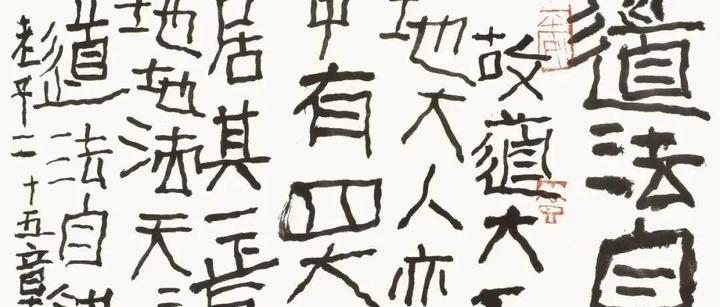 道法自
故道大
地大人亦
中有四大
居其一焉
地地法天
道法自然
老子二十五章